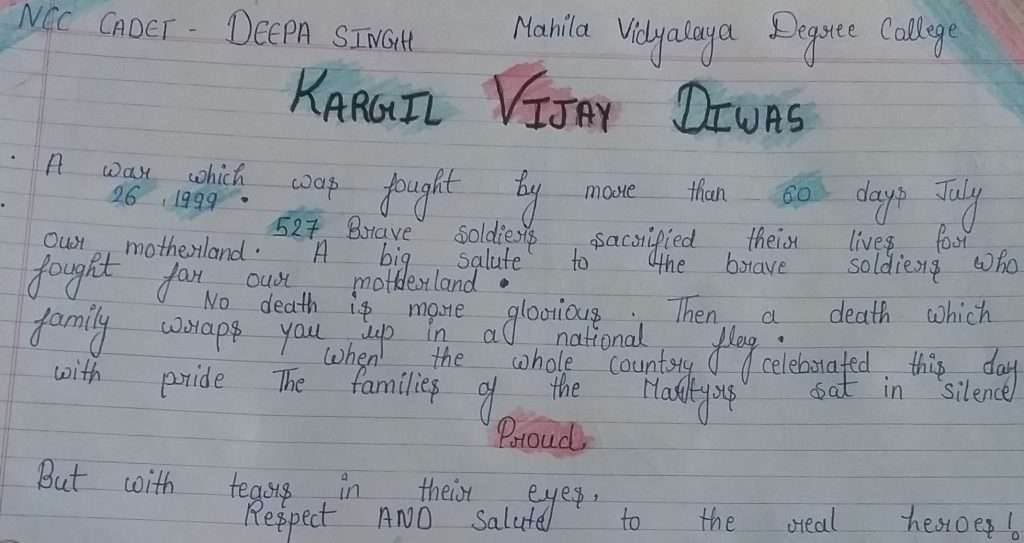 NCC CADET - DEEPA SINGH Mahila Vidyalaya Degree College
KARGIL VIJAY DIWAS
A war which was fought by more than 60 days July
26, 1999.
527 Brave soldiers sacrified their lives for
our motherland. A big salute to the brave soldiers who
fought for our motherland.
No death is more glorious. Then a death which
family wraps you up in a national flag.
When the whole country celebrated this day
with pride The families of the Martyrs sat in silence
Proud
But with tears in their eyes,
Respect AND Salute to the real heroes!